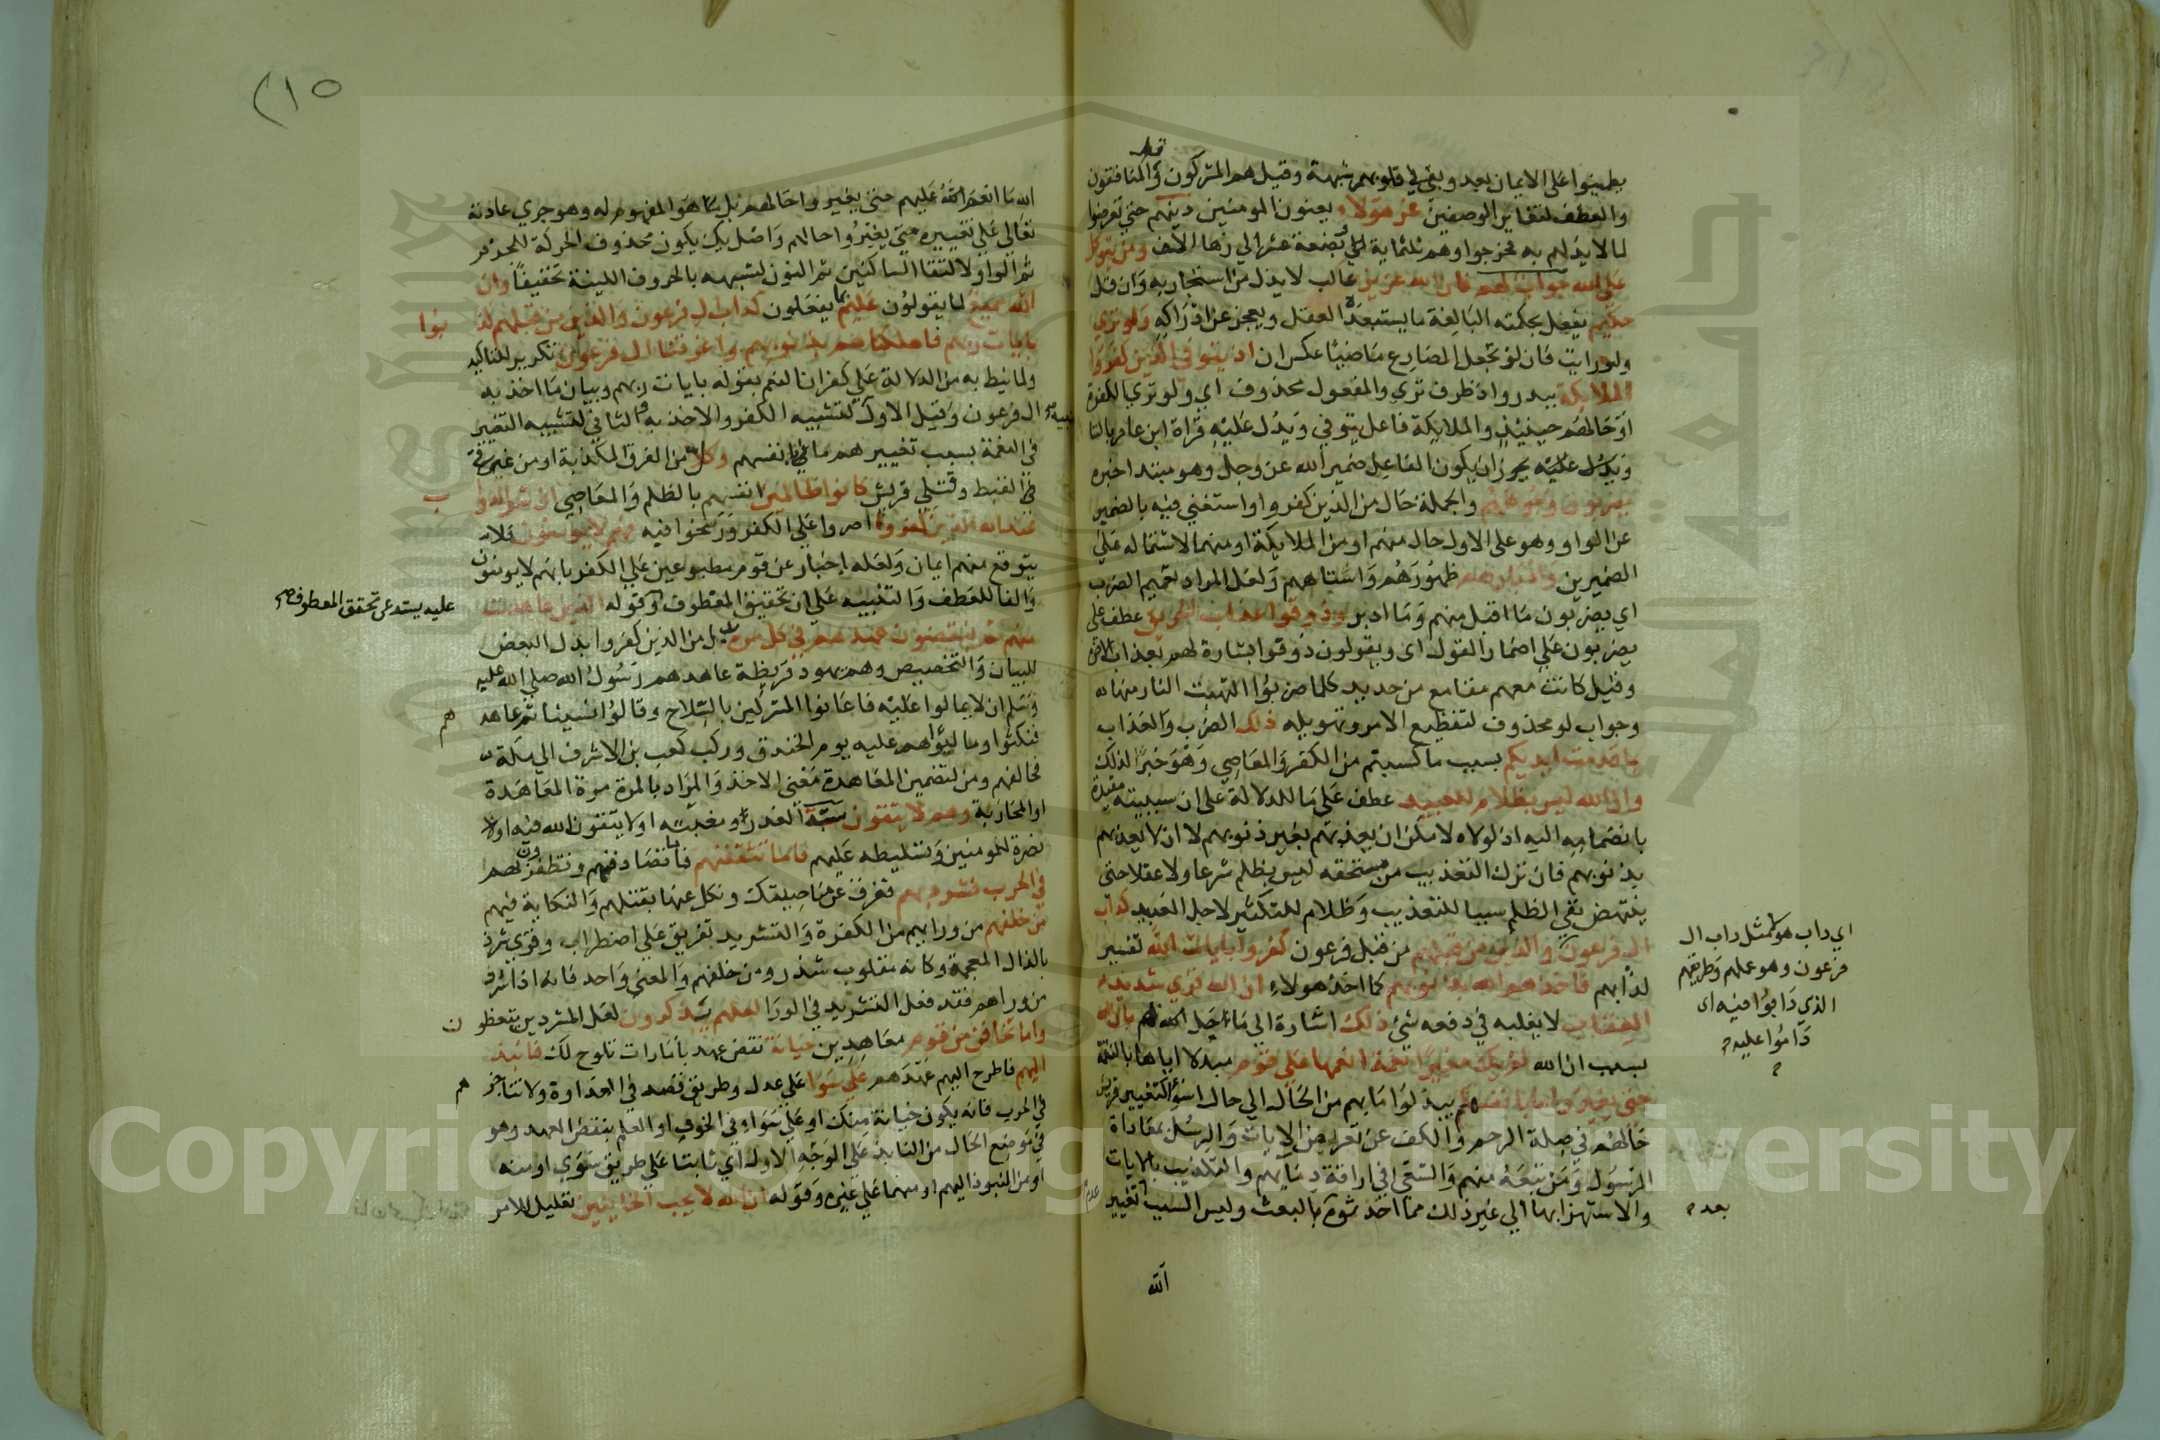 قيل
يطمئنوا على الايمان بعد وبقي في قلوبهم شبهة وقيل هم المشركون والمنافقون
والعطف لتغاير الوصفين غر هولاء يعنون المومنين دينهم حتى تعرضوا
لما لا يد لهم به فخرجوا وهم ثلثماية وبضعة عشر الي زها الالف ومن يتوكل
على الله جواب لهم فان الله عزيز غالب لا يذل من استجار به وان قل
حكيم يفعل بحكمته البالغة ما يستبعده العقل ويعجز عن ادراكه ولو تري
ولو رايت فان لو تجعل المضارع ماضيا عكس ان اذ يتوفي الذين كفروا
الملايكة ببدر واذ ظرف تري والمفعول محذوف اي ولو تري الكفرة
او حالهم حينيذ والملايكة فاعل يتوفي ويدل عليه قراة ابن عامر بالتا
ويجوز ان يكون الفاعل ضمير الله عز وجل وهو مبتدا خبره
يضربون وجوههم والجملة حال من الذين كفروا واستغني فيه بالضمير
عن الواو وهو على الاول حال منهم او من الملايكة او منهما لاشتماله على
الضميرين وادبارهم ظهورهم واستاههم ولعل المراد تعميم الضرب
اي يضربون ما اقبل منهم وما ادبر وذوقوا عذاب الحريق عطف على
يضربون على اضمار القول اي ويقولون ذوقوا بشارة لهم بعذاب الاخرة
وقيل كانت معهم مقامع من حديد كلما ضربوا التهبت النار منها
وجواب لو محذوف لتفظيع الامر وتهويله ذلك الضرب والعذاب
بما قدمت ايديكم بسبب ما كسبتم من الكفر والمعاصي وهو خبر لذلك
وان الله ليس بظلام للعبيد عطف على ما للدلالة على ان سببيته مقيدة
بانضمامه اليه اذ لولاه لامكن ان يعذبهم بغير ذنوبهم لا ان لا يعذبهم
بذنوبهم فان ترك التعذيب من مستحقه ليس بظلم شرعا ولا عقلا حتى
ينتهض نفي الظلم سببا للتعذيب وظلام للتكثير لاجل العبيد كداب
ال فرعون والذين من قبلهم من قبل فرعون كفروا بايات الله تفسير
لدابهم فاخذهم الله بذنوبهم كما اخذ هولاء ان الله قوي شديد
العقاب لا يغلبه في دفعه شئ ذلك اشارة الي ما حل بهم بان الله
بسبب ان الله لم يك مغيرا نعمة انعمها علي قوم مبدلا اياها بالنقمة
حتى يغيروا ما بانفسهم يبدلوا ما بهم من الحال الي حال اسوء كتغيير قريش
حالهم في صلة الرحم والكف عن تعرض الايات والرسل بمعاداة
الرسول ومن تبعه منهم والسعي في اراقة دمايهم والتكذيب بالايات
والاستهزا بها الي غير ذلك مما احدثوه بالبعث وليس السبب تغيير
اي داب هولا مثل داب ال
فرعون وهو عملهم وطريقهم
الذي دابوا فيه اي
داموا عليه
بعد
عدم
الله
٢١٥
الله ما انعم الله عليهم حتى يغيروا حالهم بل ما هو المفهوم له وهو جري عادته
تعالي علي تغييره حتى يغيروا حالهم واصل يك يكون فحذف الحركة للجزم
ثم الواو لالتقا الساكنين ثم النون لشبهه بالحروف اللينة تخفيفا وان
الله سميع لما يقولون عليم بما يفعلون كداب ال فرعون والذين من قبلهم كذ بوا
بايات ربهم فاهلكناهم بذنوبهم واغرقنا ال فرعون تكرير للتاكيد
ولما نيط به من الدلالة علي كفران النعم بقوله بايات ربهم وبيان ما اخذ به
ال فرعون وقيل الاول لتشبيه الكفر والاخذ به والثاني لتشبيه التغيير
في النعمة بسبب تغييرهم ما بانفسهم وكل من الفرق المكذبة او من غرقي
القبط وقتلي قريش كانوا ظالمين انفسهم بالظلم والمعاصي ان شر الدوا ب
عند الله الذين كفروا اصروا علي الكفر ورسخوا فيه فهم لا يومنون فلا
يتوقع منهم ايمان ولعله اخبار عن قوم مطبوعين علي الكفر بانهم لا يومنون
والفا للعطف والتنبيه علي ان تحقيق المعطوف وقوله الذين عاهدت
عليه يستدعي تحقق المعطوف
منهم ثم ينقضون عهدهم في كل مرة بدل من الذين كفروا بدل البعض
للبيان والتخصيص وهم يهود قريظة عاهدهم رسول الله صلي الله عليه
وسلم ان لا يمالوا عليه فاعانوا المشركين بالسلاح وقالوا نسينا ثم عاهد هم
فنكثوا ومالؤاهم عليه يوم الخندق وركب كعب بن الاشرف الي مكة
فحالفهم ومن لتضمين المعاهدة معني الاخذ والمراد بالمرة مرة المعاهدة
او المحاربة وهم لا يتقون سبة الغدر ومغبته او لا يتقون الله فيه او
نصرة للمومنين وتسليطه عليهم فاما تثقفنهم فاما تصادفنهم وتظفرن بهم
في الحرب فشرد بهم ففرق عن مناصبتك ونكل عنها بقتلهم والنكاية فيهم
من خلفهم من ورايهم من الكفرة والتشريد تفريق علي اضطراب وقري شرذ
بالذال المعجمة وكانه مقلوب شذر ومن خلفهم والمعني واحد فانه اذا شرد
من وراهم فقد فعل التشريد في الورا لعلهم يذكرون لعل المشردين يتعظو ن
واما تخافن من قوم معاهدين خيانة نقض عهد بامارات تلوح لك فانبذ
اليهم فاطرح اليهم عهدهم علي سوا علي عدل وطريق قصد في العداوة ولا تناجز هم
في الحرب فانه يكون خيانة منك او علي سواء في الخوف او العلم بنقض العهد وهو
في موضع الحال من النابذ علي الوجه الاول اي ثابتا علي طريق سوي او منه
او من المنبوذ اليهم او منهما علي غيره وقوله ان الله لا يحب الخاينين تعليل للامر
Copyright © King Saud University